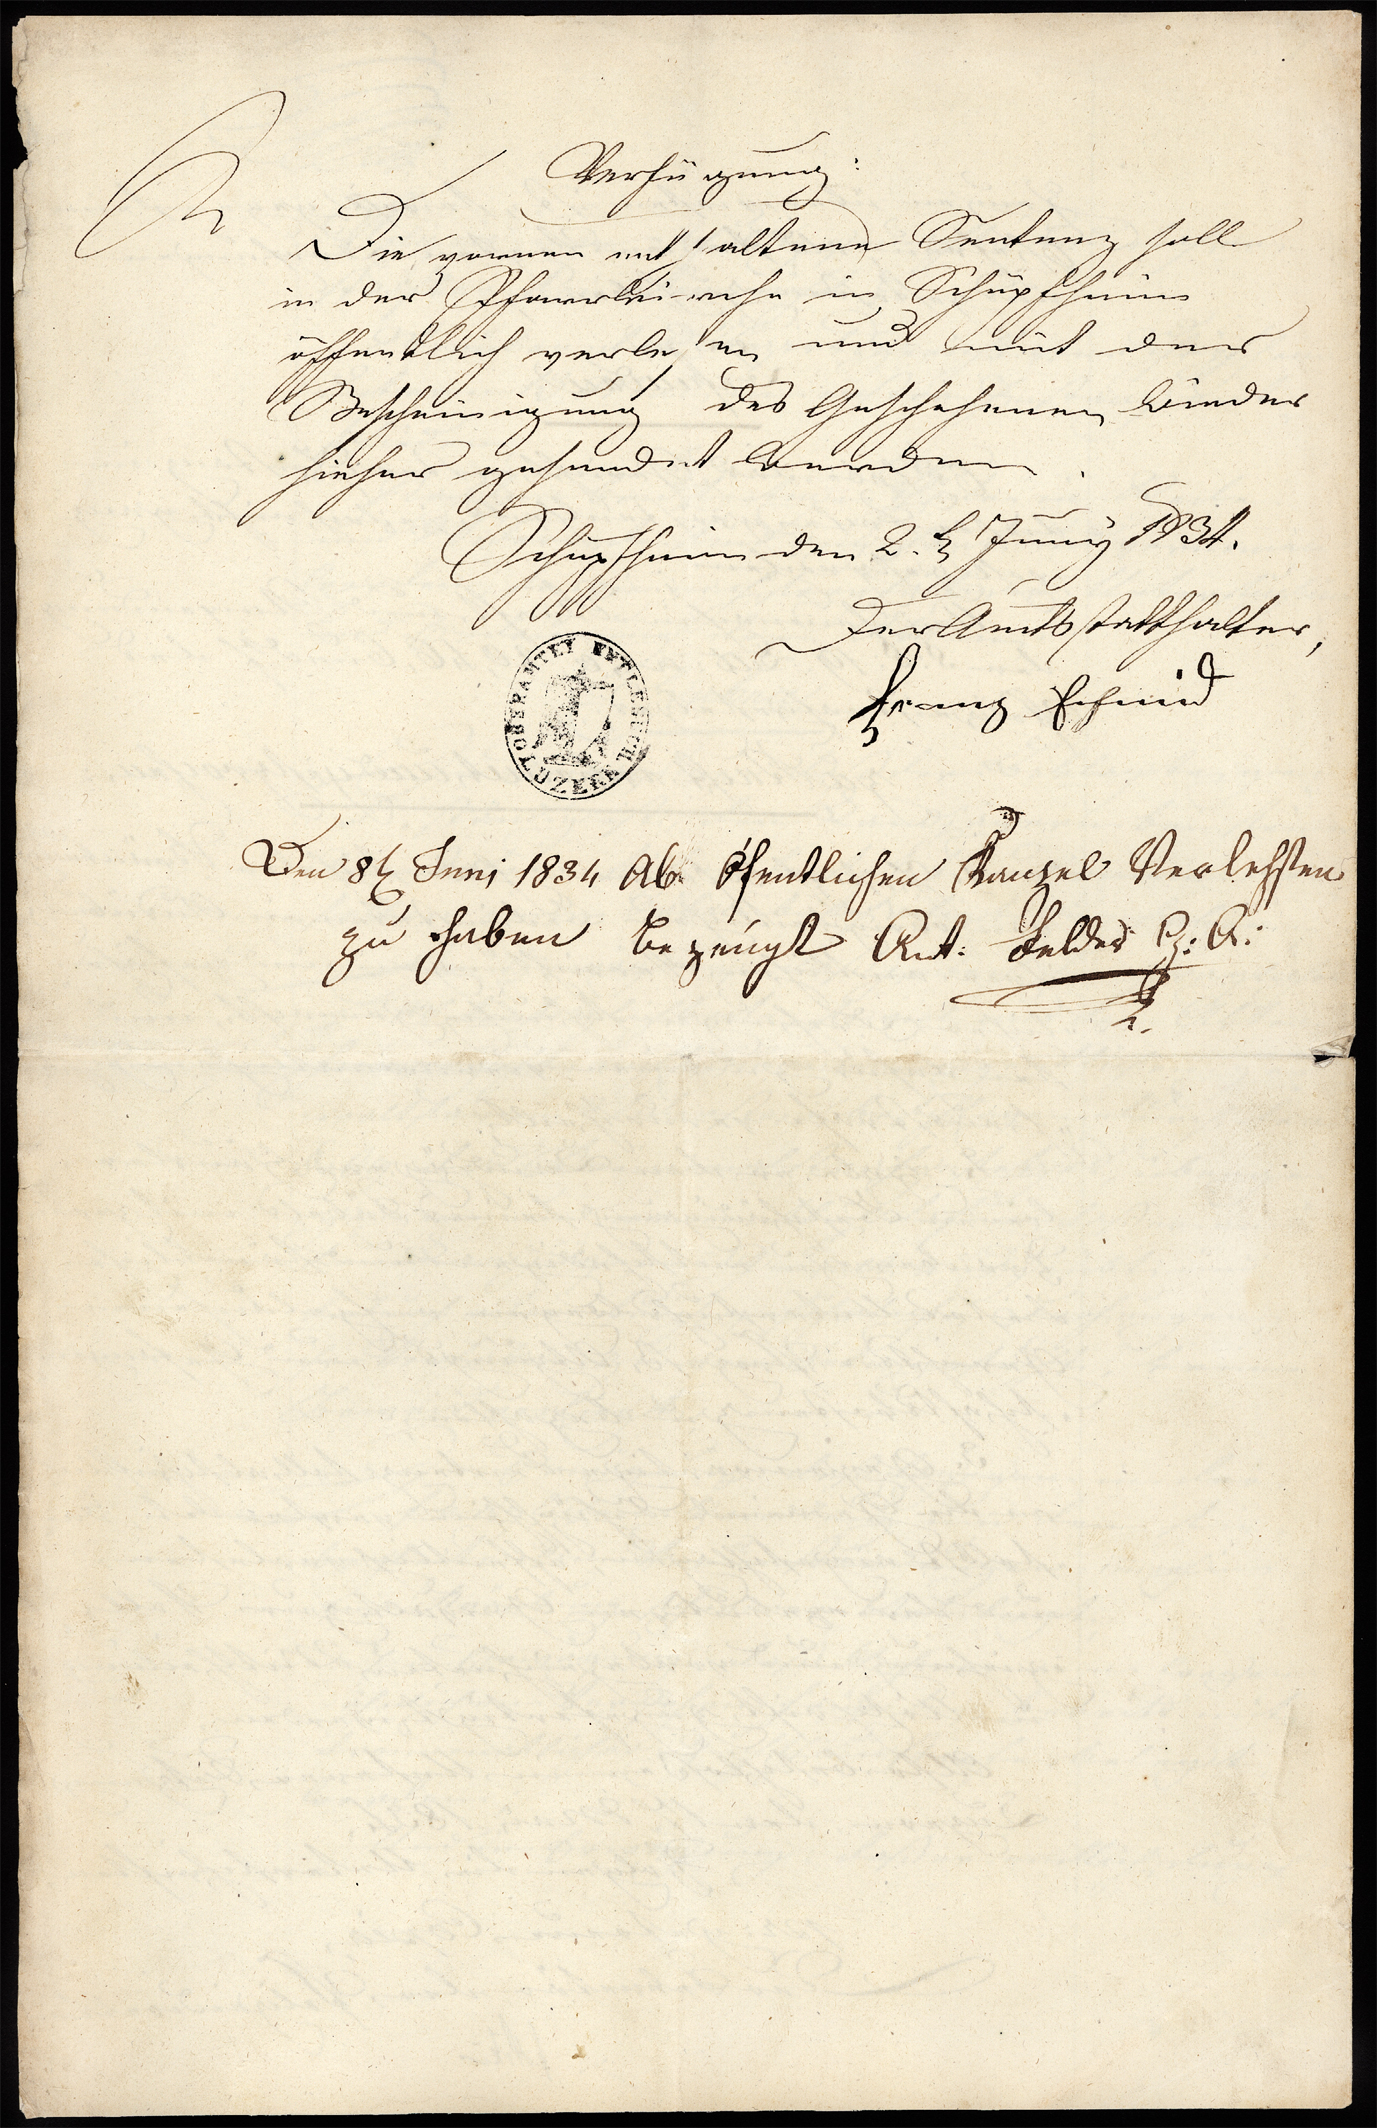 Verfügung:
Die vornen enthaltene Sentenz soll
in der Pfarrkirche in Schüpfheim
öffentlich verlesen und mit der
Bescheinigung des Geschehenen wieder
hieher gesendet werden.
Schüpfheim den 2.t Juny 1834.
Der Amtsstatthalter,
Franz Schmid
OBERAMTEY ENTLEBUCH
LUZERN
Den 8t Juni 1834 Ab öfentlichen Kanzel Verlehsten
zu haben bezeugt Ant: Felder